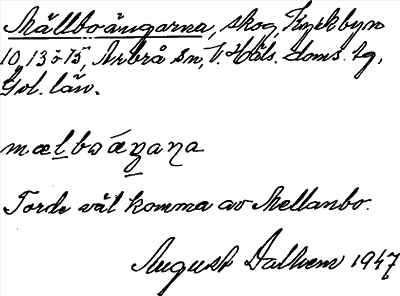 Mällboängarna, skog, Kyrkbyn
10, 13 o 15, Arbrå sn, V. Häls. doms. tg,
Gvl. län.
mælboáŋaɳa
Torde väl komma av Mellanbo.
August Dalhem 1947